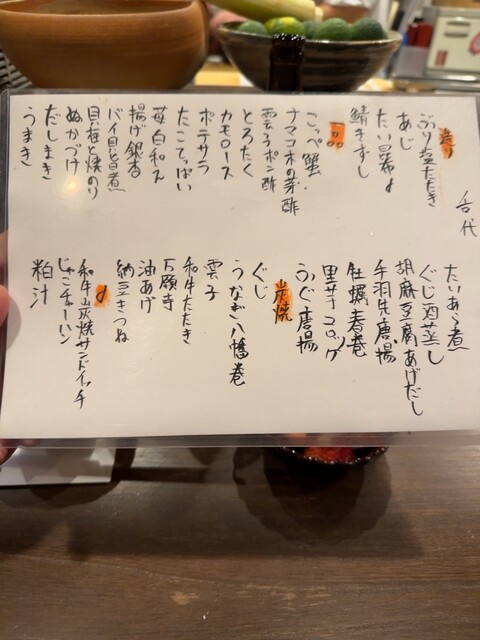 舌代
造り
ぶり塩たたき
あじ
たい昆布〆
鯖きずし
一品
こっぺ蟹
ナマコ木の芽酢
雲子ポン酢
とろたく
カモロース
ポテサラ
たこてっぱい
苺白和え
揚げ銀杏
バイ貝旨煮
貝柱と焼のり
ぬかづけ
だしまき
うまき
たいあら煮
ぐじ酒蒸し
胡麻豆腐あげだし
手羽先唐揚
牡蠣春巻
里芋コロッケ
ふぐ唐揚
炭焼
ぐじ
うなぎ八幡巻
雲子
和牛たたき
万願寺
油あげ
納豆きつね
〆
和牛炭焼サンドイッチ
じゃこチャーハン
粕汁